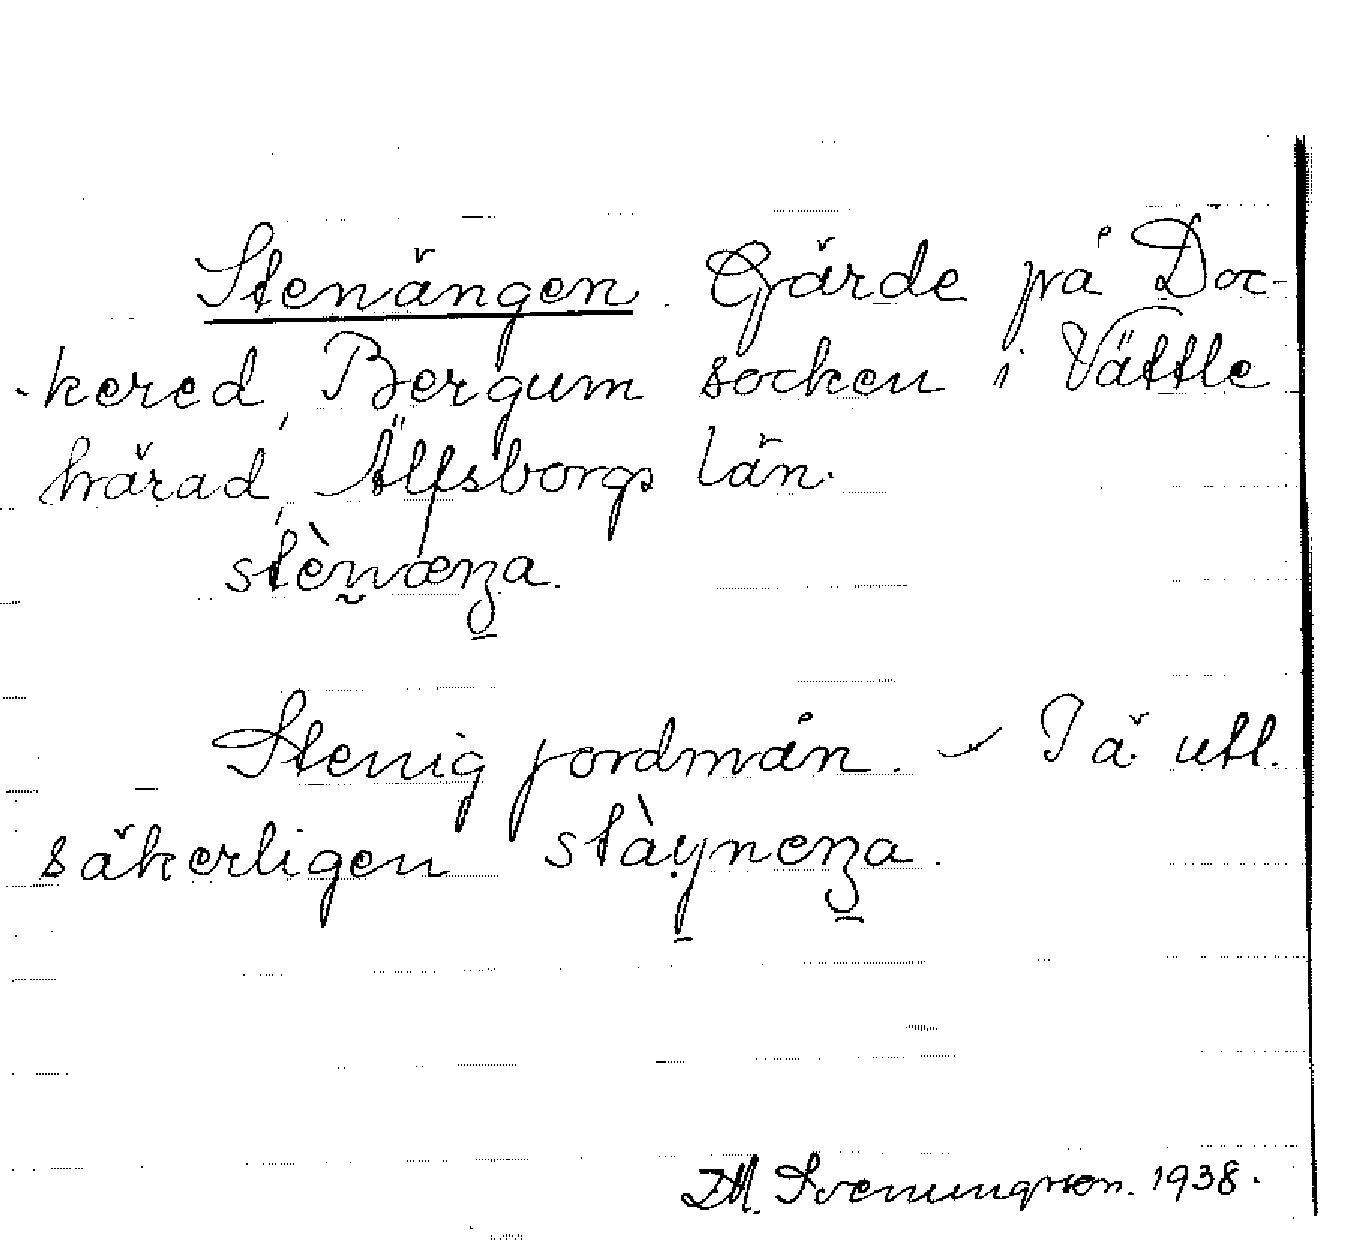 Stenängen. Gärde på Doc-
kered, Bergum socken i Vättle
härad, Älfsborgs län.
stènæŋa.
Stenig jordmån. – I ä utl.
säkerligen
Svenungsson. 1938.